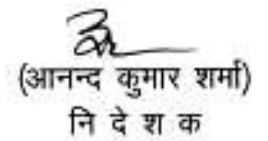 (आनन्द कुमार शर्मा)
नि दे श क